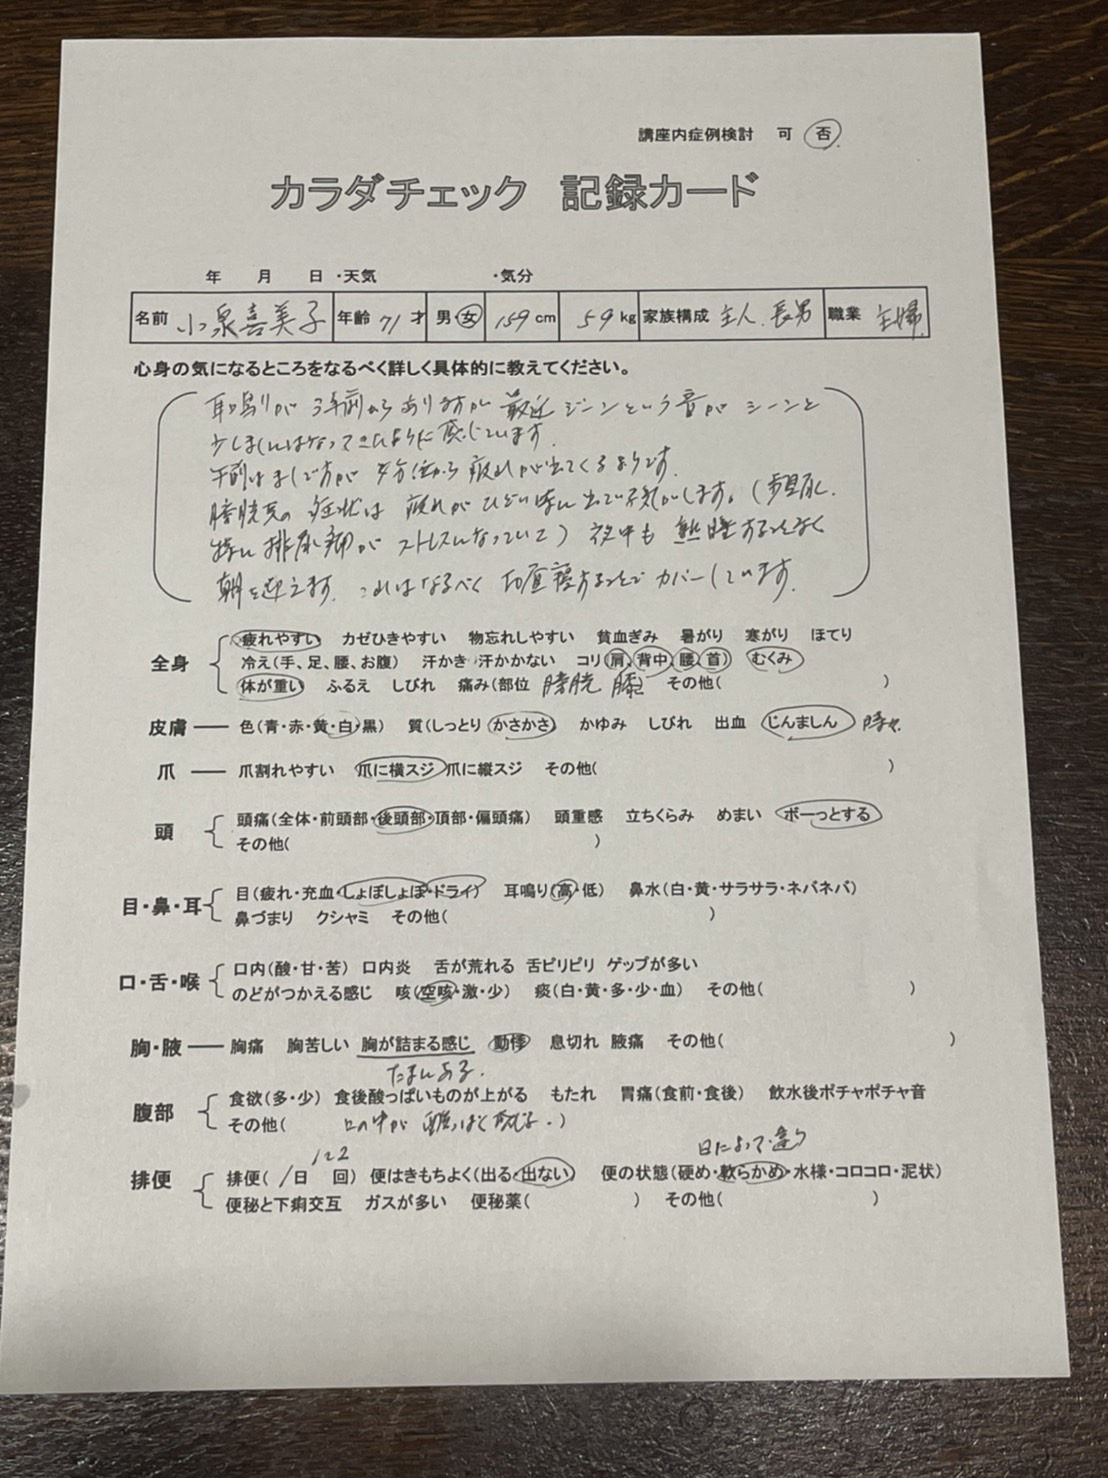 講座内症例検討 可 否
カラダチェック 記録カード
年 月 日 ・天気 ・気分
名前 小泉喜美子 年齢 71 才 男 女 159 cm 59 kg 家族構成 主人、長男 職業 主婦
心身の気になるところをなるべく詳しく具体的に教えてください。
耳鳴りが 3年前からありますが 最近 ジーンという音が シーンと
少しましにはなってきたように感じています。
午前はましですが 夕方位から 疲れが出てくるようです。
膀胱炎の 症状は 疲れがひどい時に 出ている気がします。(頻尿、
特に 排尿痛が ストレスになっていて) 夜中も 熟睡することなく
朝を迎えます。これはなるべく お昼寝することで カバーしています。
全身 疲れやすい カゼひきやすい 物忘れしやすい 貧血ぎみ 暑がり 寒がり ほてり
冷え(手、足、腰、お腹) 汗かき 汗かかない コリ(肩、背中、腰、首) むくみ
体が重い ふるえ しびれ 痛み(部位 膀胱 膝) その他( )
皮膚 色(青・赤・黄・白・黒) 質(しっとり かさかさ) かゆみ しびれ 出血 じんましん 時々
爪 爪割れやすい 爪に横スジ 爪に縦スジ その他( )
頭 頭痛(全体・前頭部・後頭部・頂部・偏頭痛) 頭重感 立ちくらみ めまい ボーっとする
その他( )
目・鼻・耳 目(疲れ・充血・しょぼしょぼ・ドライ) 耳鳴り(高・低) 鼻水(白・黄・サラサラ・ネバネバ)
鼻づまり クシャミ その他( )
口・舌・喉 口内(酸・甘・苦) 口内炎 舌が荒れる 舌ピリピリ ゲップが多い
のどがつかえる感じ 咳(空咳・激・少) 痰(白・黄・多・少・血) その他( )
胸・腋 胸痛 胸苦しい 胸が詰まる感じ 動悸 息切れ 腋痛 その他( )
たまにある。
腹部 食欲(多・少) 食後酸っぱいものが上がる もたれ 胃痛(食前・食後) 飲水後ポチャポチャ音
その他( 口の中が 酸っぱく )
1〜2 日によって違う
排便 排便( 1日 回) 便はきもちよく(出る・出ない) 便の状態(硬め・軟らかめ・水様・コロコロ・泥状)
便秘と下痢交互 ガスが多い 便秘薬( ) その他( )